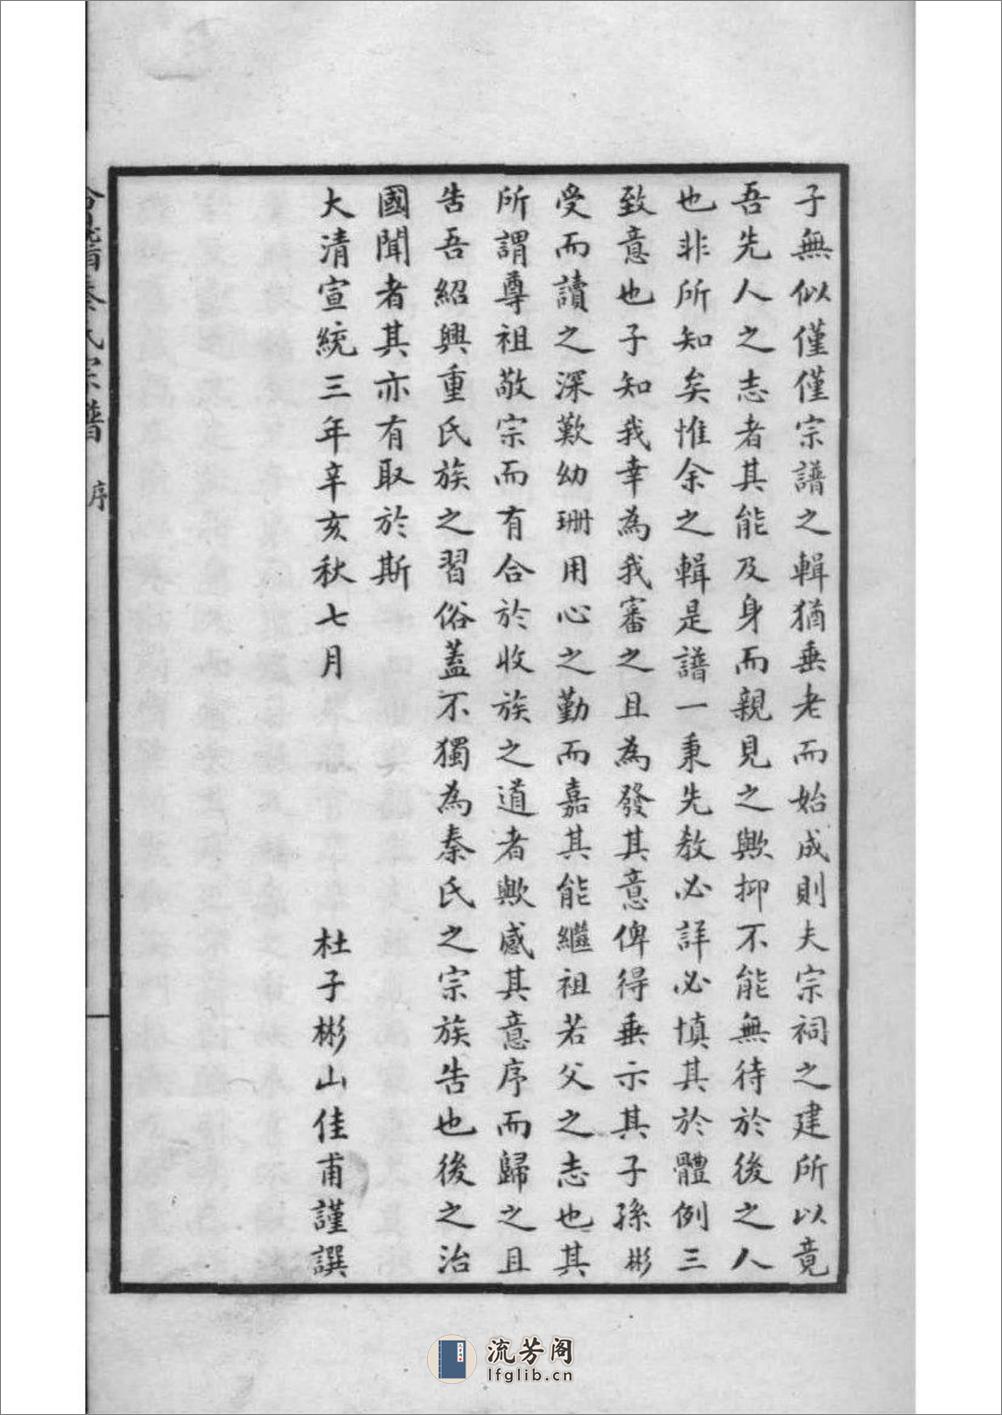 子無似僅僅宗譜之輯猶垂老而始成則夫宗祠之建所以竟
吾先人之志者其能及身而親見之歟抑不能無待於後之人
也非所知矣惟余之輯是譜一秉先教必詳必慎其於體例三
致意也子知我幸為我審之且為發其意俾得垂示其子孫彬
受而讀之深歎幼珊用心之勤而嘉其能繼祖若父之志也其
所謂尊祖敬宗而有合於收族之道者歟感其意序而歸之且
告吾紹興重氏族之習俗蓋不獨為秦氏之宗族告也後之治
國聞者其亦有取於斯
大清宣統三年辛亥秋七月 杜子彬山佳甫謹譔
會稽秦氏宗譜 序
流芳阁
lfglib.cn